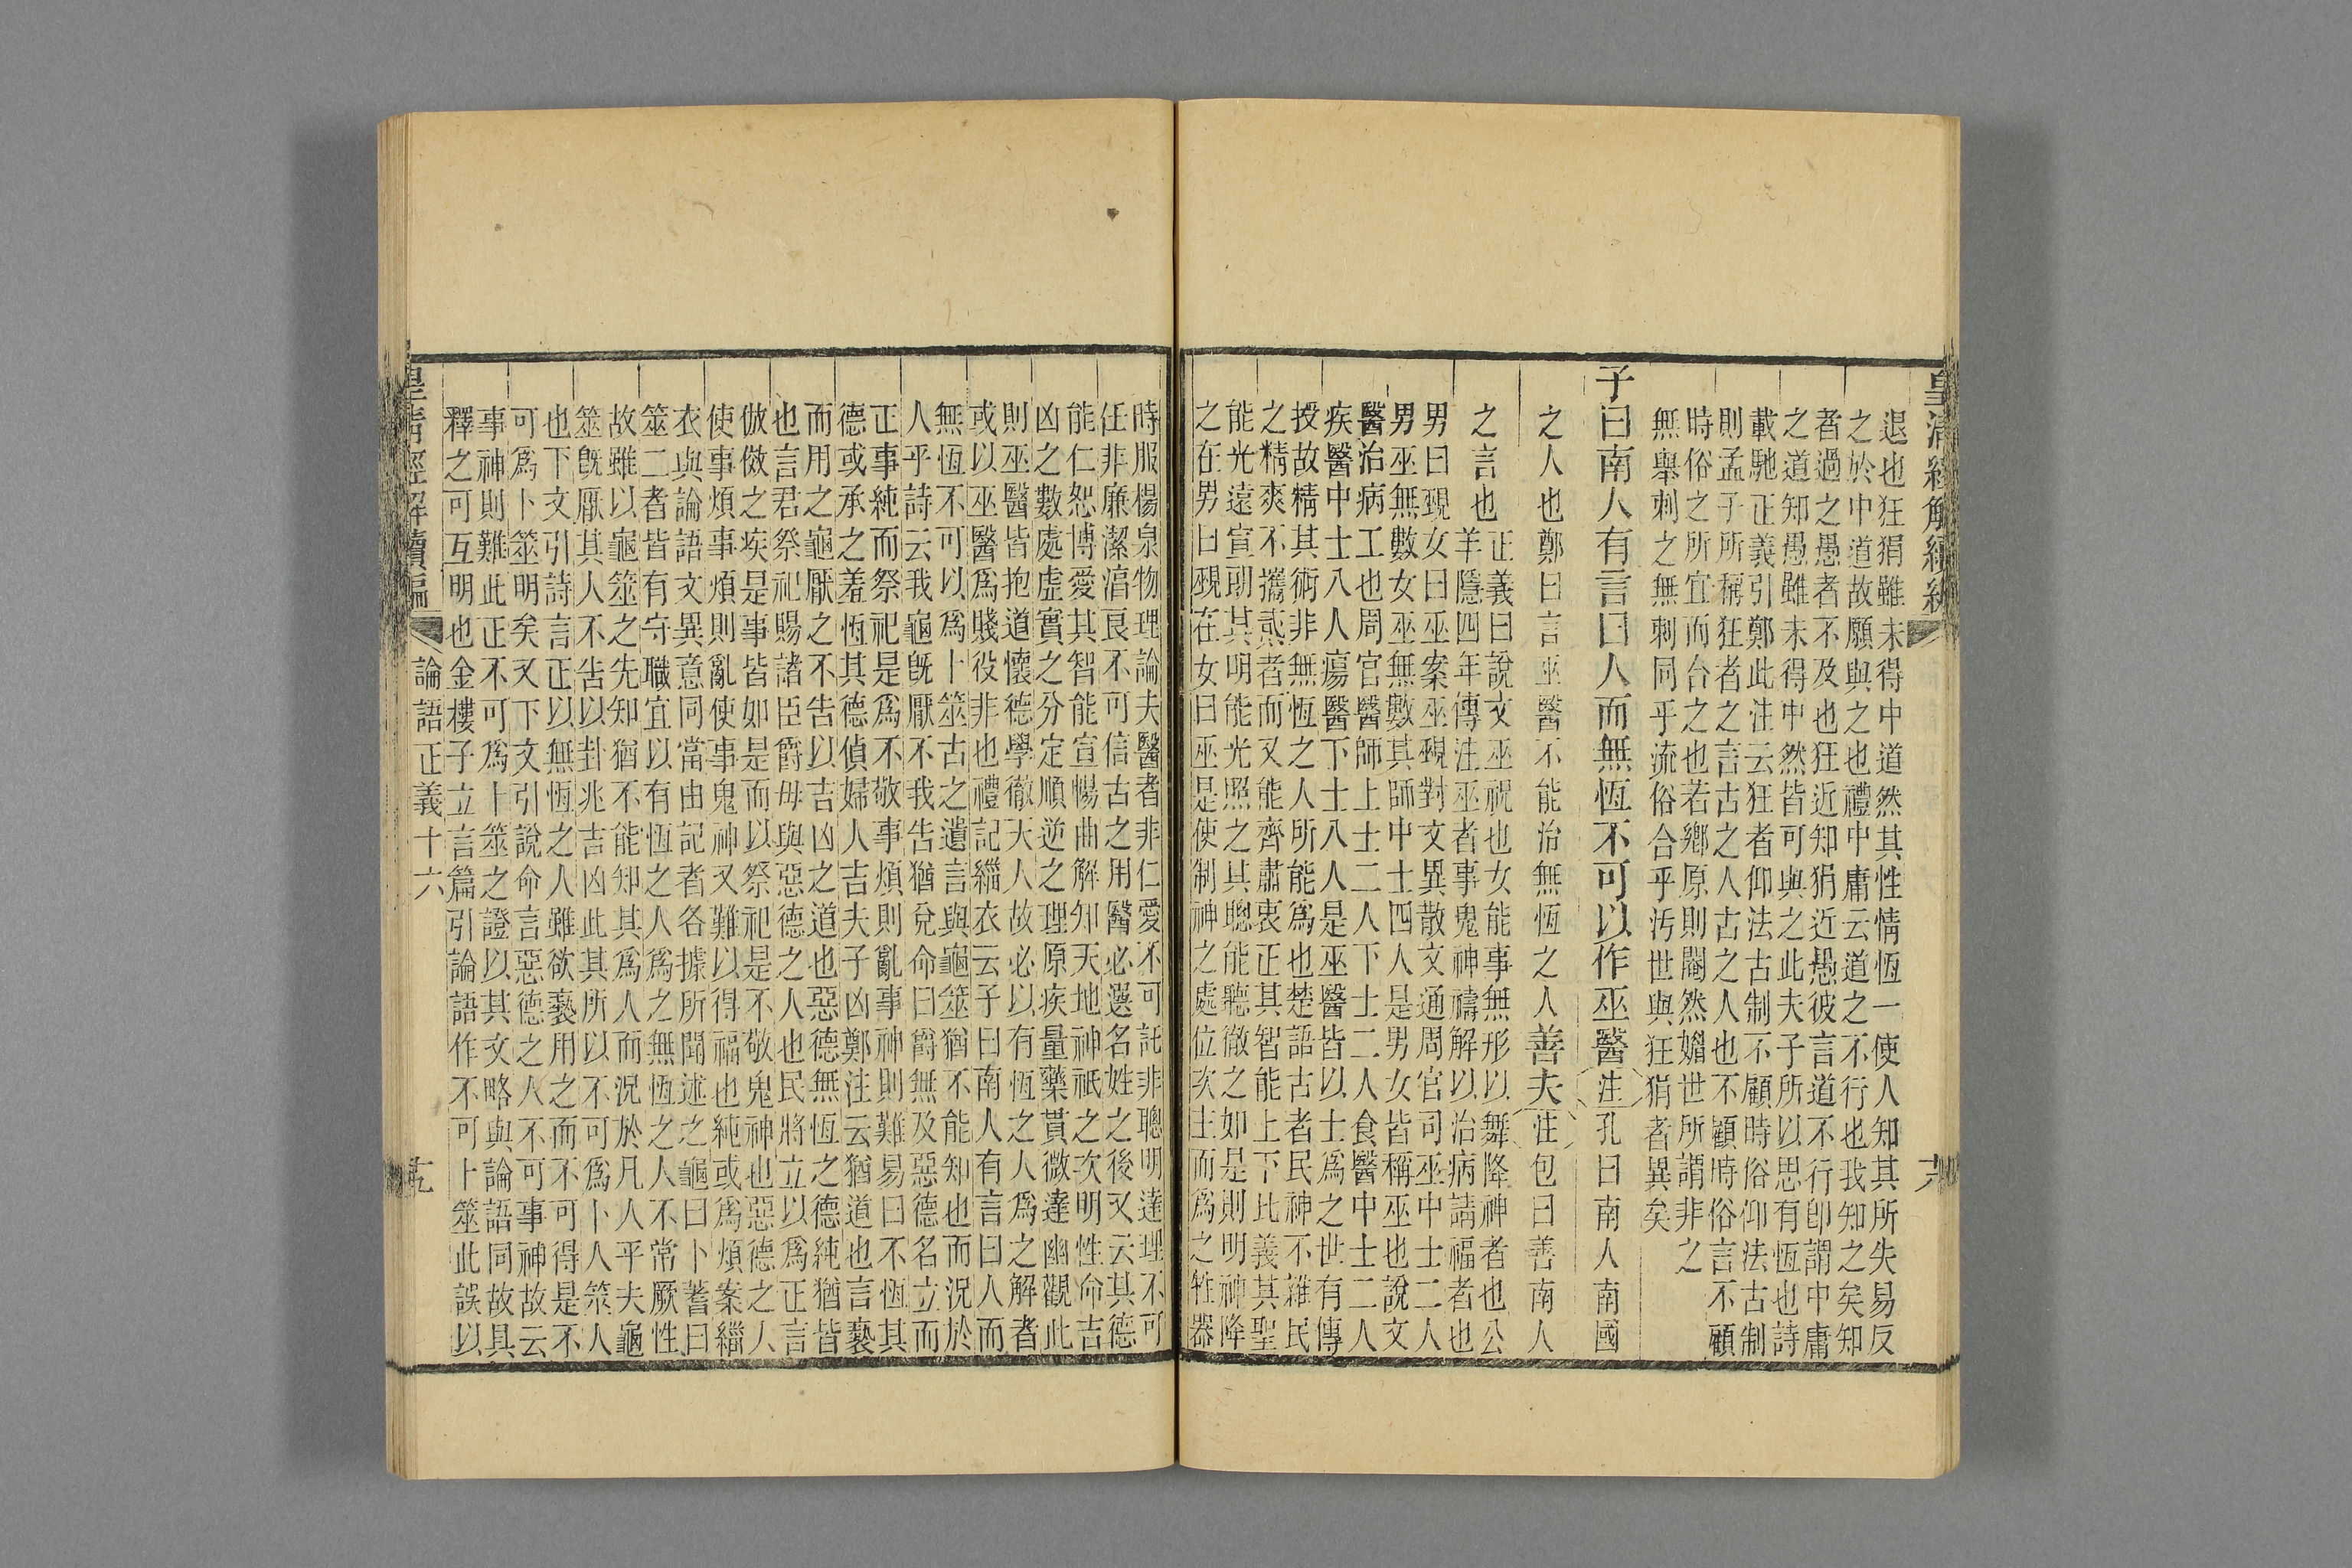 皇清經解續編
退也狂狷雖未得中道然其性情恆一使人知其所失易反
之於中道故願與之也禮中庸云道之不行也我知之矣知
者過之愚者不及也狂近知狷近愚彼言道不行卽謂中庸
之道知愚雖未得中然皆可與之此夫子所以思有恆也詩
載馳正義引鄭此注云狂者仰法古制不顧時俗仰法古制
則孟子所稱狂者之言古之人古之人也不顧時俗言不顧
時俗之所宜而合之也若鄉原則閹然媚世所謂非之
無舉刺之無刺同乎流俗合乎污世與狂狷者異矣
子曰南人有言曰人而無恆不可以作巫醫注孔曰南人南國
之人也鄭曰言巫醫不能治無恆之人善夫注包曰善南人
之言也正義曰說文巫祝也女能事無形以舞降神者也公
羊隱四年傳注巫者事鬼神禱解以治病請福者也
男曰覡女曰巫案巫覡對文異散文通周官司巫中士二人
男巫無數女巫無數其師中士四人是男女皆稱巫也說文
醫治病工也周官醫師上士二人下士二人食醫中士二人
疾醫中士八人瘍醫下士八人是巫醫皆以士爲之世有傳
授故精其術非無恆之人所能爲也楚語古者民神不雜民
之精爽不攜貳者而又能齊肅衷正其智能上下比義其聖
能光遠宣朗其明能光照之其聰能聽徹之如是則明神降
之在男曰覡在女曰巫是使制神之處位次主而爲之牲器
時服楊泉物理論夫醫者非仁愛不可託非聰明達理不可
任非廉潔淳良不可信古之用醫必選名姓之後又云其德
能仁恕博愛其智能宣暢曲解知天地神祇之次明性命吉
凶之數處虛實之分定順逆之理原疾量藥貫微達幽觀此
則巫醫皆抱道懷德學徹天人故必以有恆之人爲之解者
或以巫醫爲賤役非也禮記緇衣云子曰南人有言曰人而
無恆不可以爲卜筮古之遺言與龜筮猶不能知也而況於
人乎詩云我龜旣厭不我告猶兌命曰爵無及惡德名立而
正事純而祭祀是爲不敬事煩則亂事神則難易曰不恆其
德或承之羞恆其德偵婦人吉夫子凶鄭注云猶道也言褻
而用之龜厭之不告以吉凶之道也惡德無恆之德純猶皆
也言君祭祀賜諸臣爵毋與惡德之人也民將立以爲正言
倣傚之疾是事皆如是而以祭祀是不敬鬼神也惡德之人
使事煩事煩則亂使事鬼神又難以得福也純或爲煩案緇
衣與論語文異意同當由記者各據所聞述之龜曰卜蓍曰
筮二者皆有守職宜以有恆之人爲之無恆之人不常厥性
故雖以龜筮之先知猶不能知其爲人而況於凡人乎夫龜
筮旣厭其人不告以卦兆吉凶此其所以不可爲卜人筮人
也下文引詩言正以無恆之人雖欲褻用之而不可得是不
可爲卜筮明矣又下文引說命言惡德之人不可事神故云
事神則難此正不可爲卜筮之證以其文略與論語同故具
釋之可互明也金樓子立言篇引論語作不可卜筮此誤以
皇清經解續編
論語正義十六